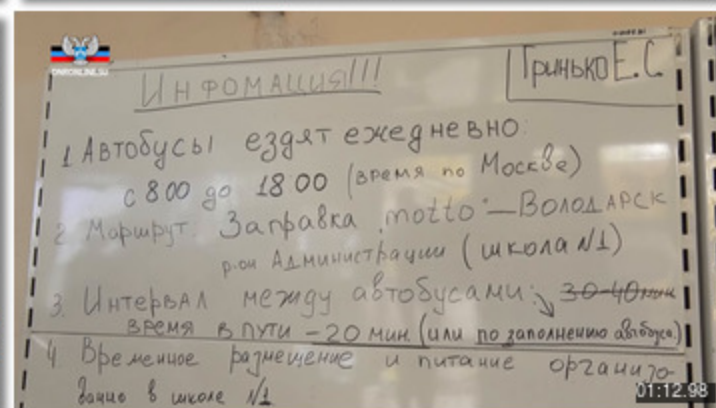 DNRONLINE.SU
ИНФОМАЦИЯ!!!
Гринько Е.С.
1 Автобусы ездят ежедневно:
с 8 00 до 18 00 (время по Москве)
2. Маршрут: Заправка "motto" — ВОЛОДАРСК
р-он Администрации (школа N1)
3. Интервал между автобусами: 30-40 мин
время в пути – 20 мин. (или по заполнению автобуса)
4 Временное размещение и питание организо-
вано в школе №1
01:12.98